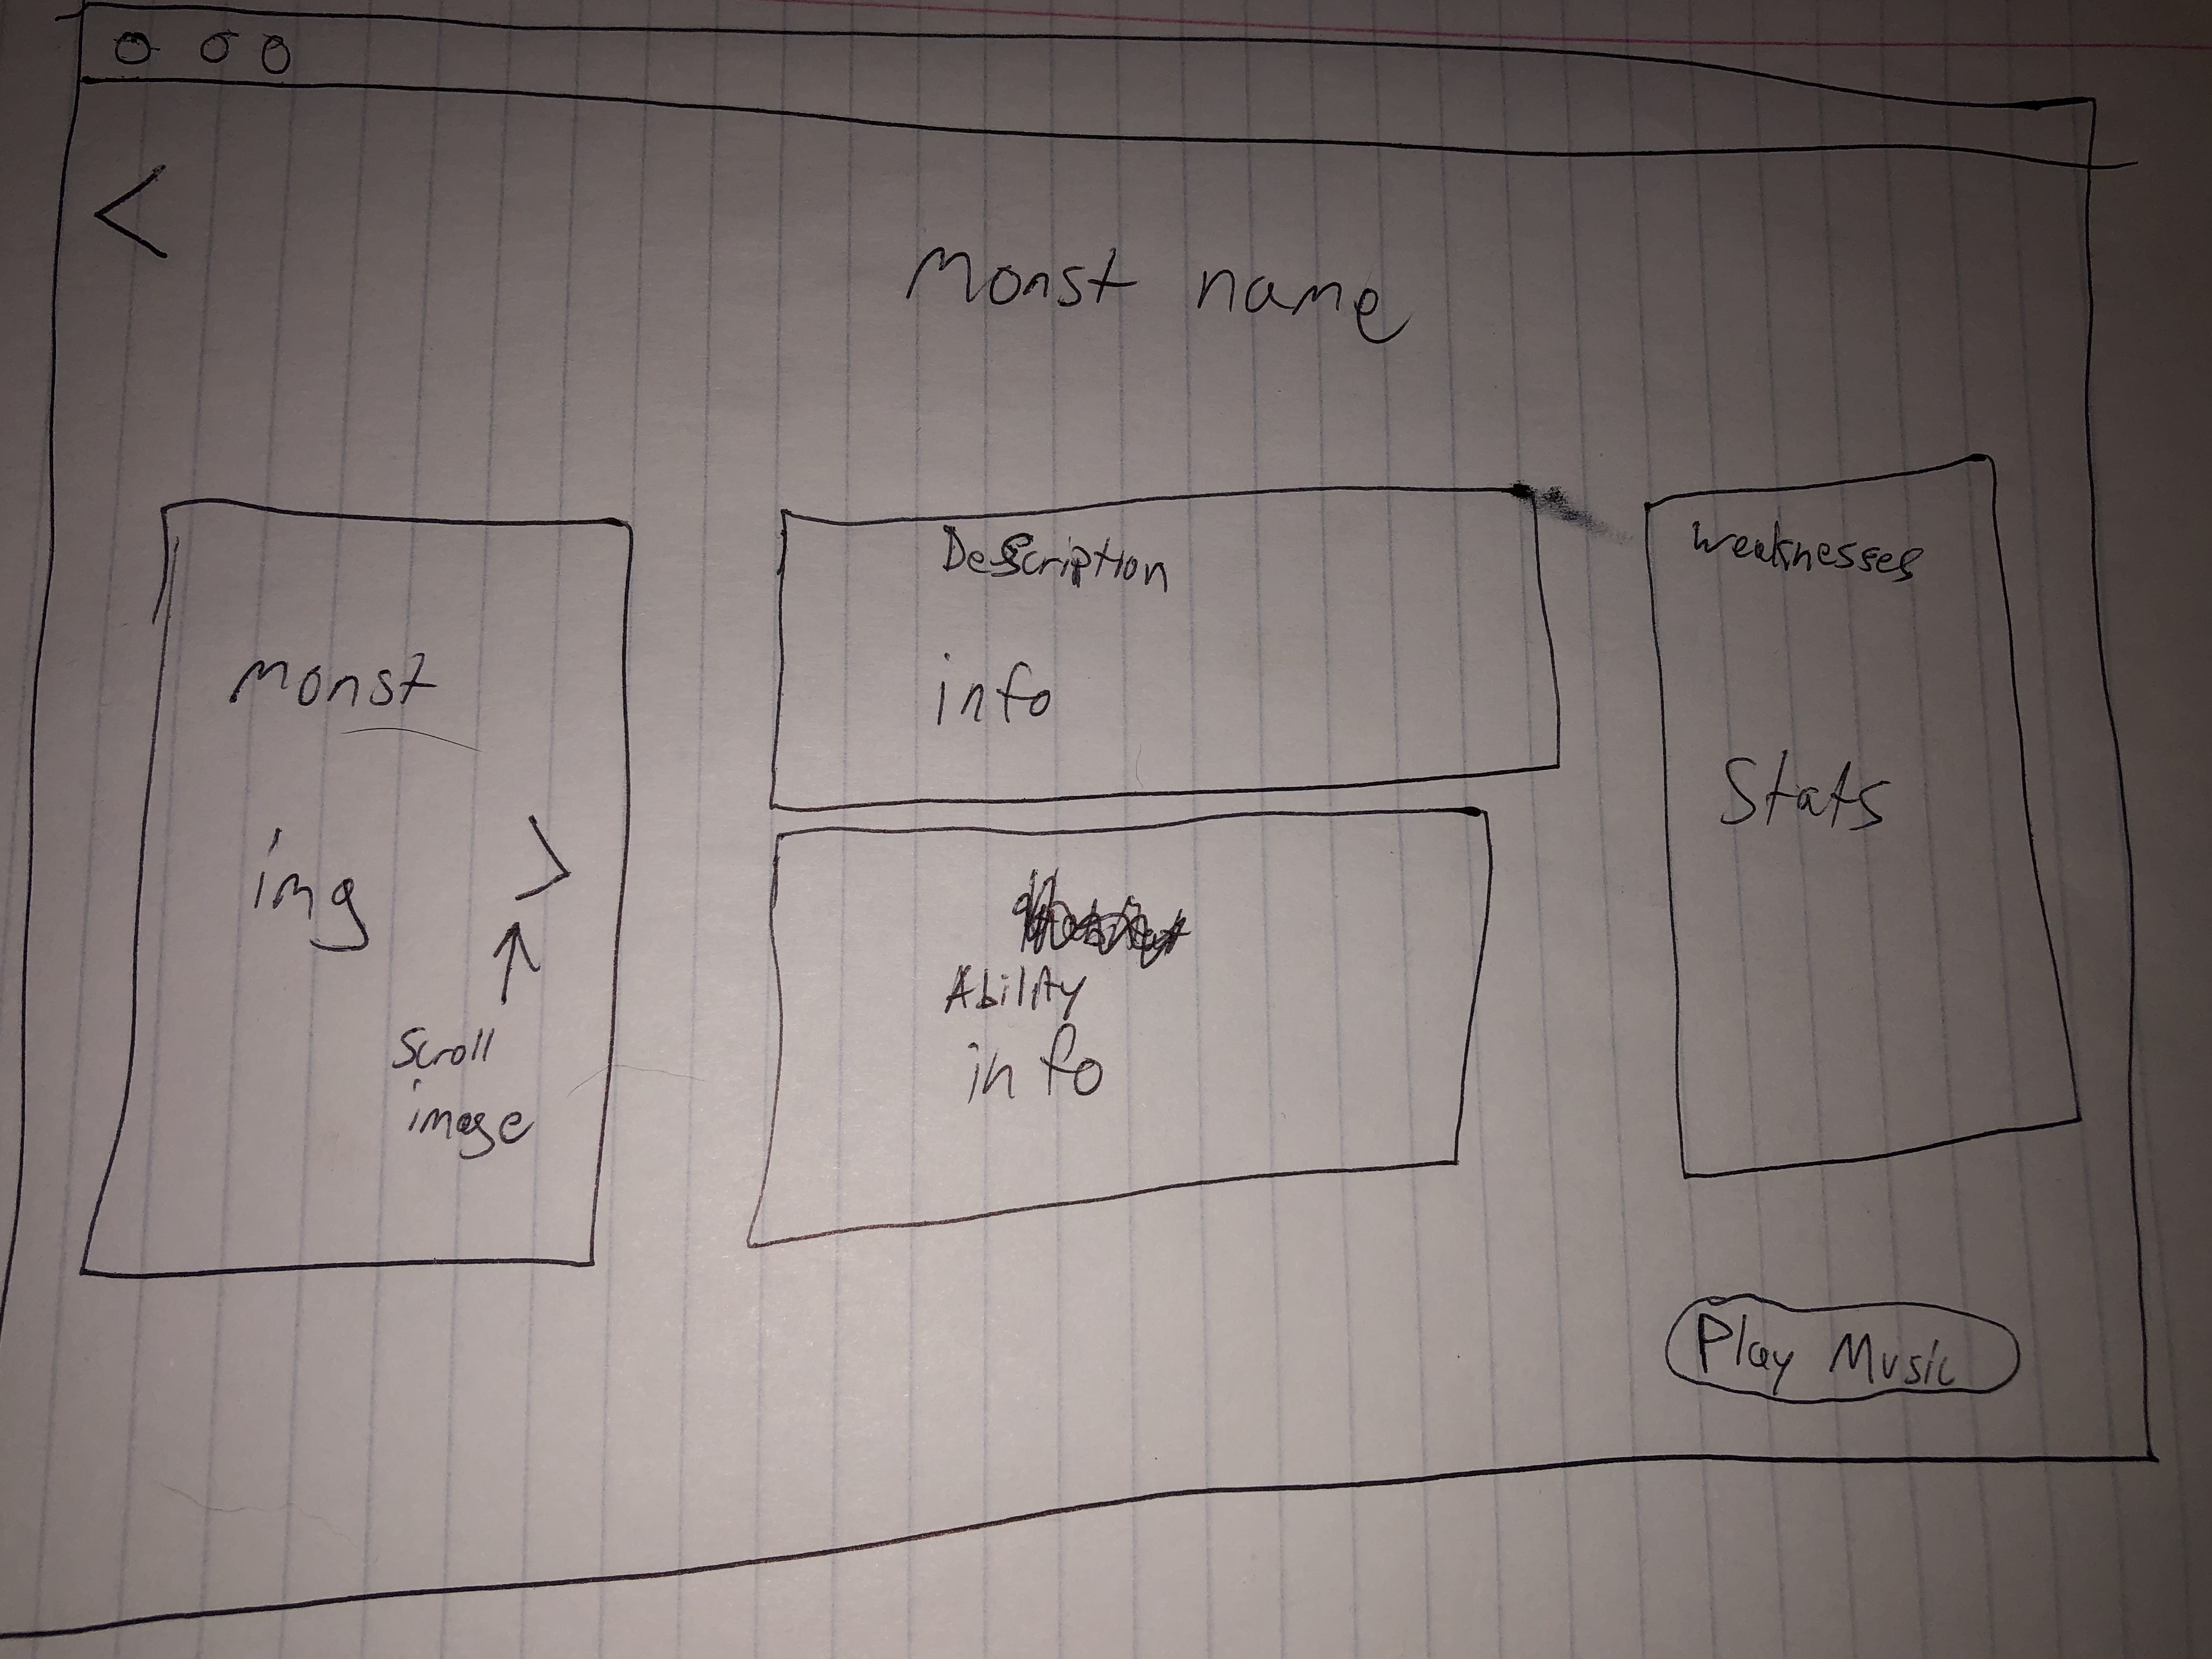 Monst name
monst
img
Scroll
image
Description
info
Ability
info
Weaknesses
Stats
Play Music